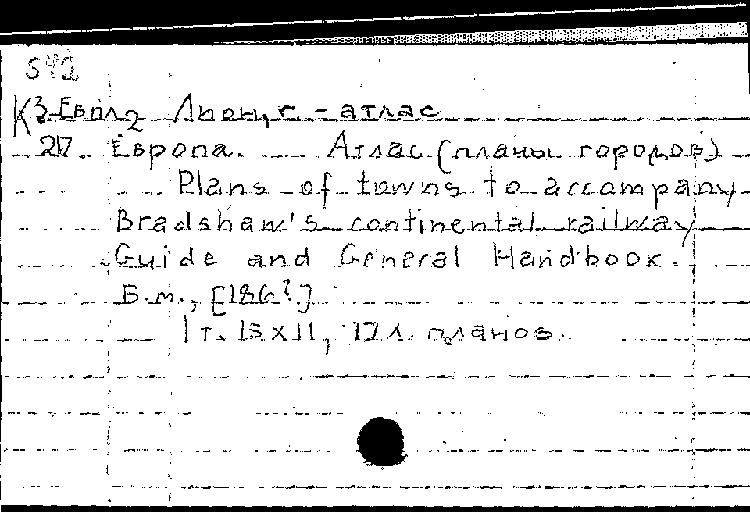 542
К 3-Евпл 2 Лион, г. - атлас
217. Европа. Атлас (планы городов)
Plans of towns to accompany
Bradshaw's continental railway
Guide and General Handbook.
Б.м., [186?]
1 т. 13 x 11, 17 л. планов.